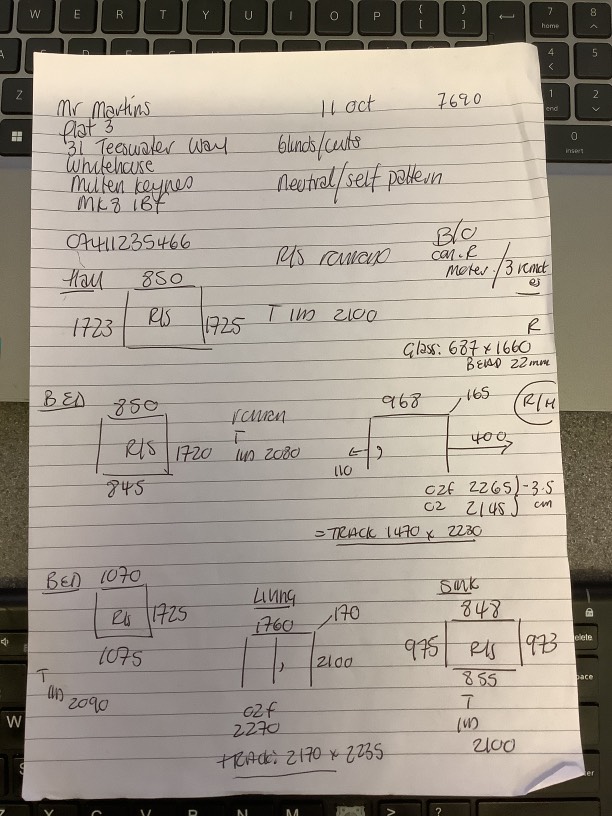 Mr Martins 11 Oct 7690
Flat 3
31 Teeswater Way blinds/curts
Whitehouse
Milten Keynes neutral/self pattern
MK8 1BF
07411235466
R/s B/O
con.R
Moter./3 remot
es
Hall 850
1723 R/S 1725 T 1M 2100
R
Glass: 687 x 1660
BEAD 22mm
BED 850
R/S 1720
845
T
1M 2080
968 165 R/H
400
110
C2F 2265 -3.5
C2 2145 cm
= TRACK 1470 x 2230
BED 1070
R/S 1725
1075
T
1M 2090
Living
1760 170
2100
C2F
2270
TRACK: 2170 x 2235
Sink
848
975 R/S 973
855
T
1M
2100
W E R T Y U I O P { [ } ] 7 home 8
4 5
Z 1 end 2
0 insert